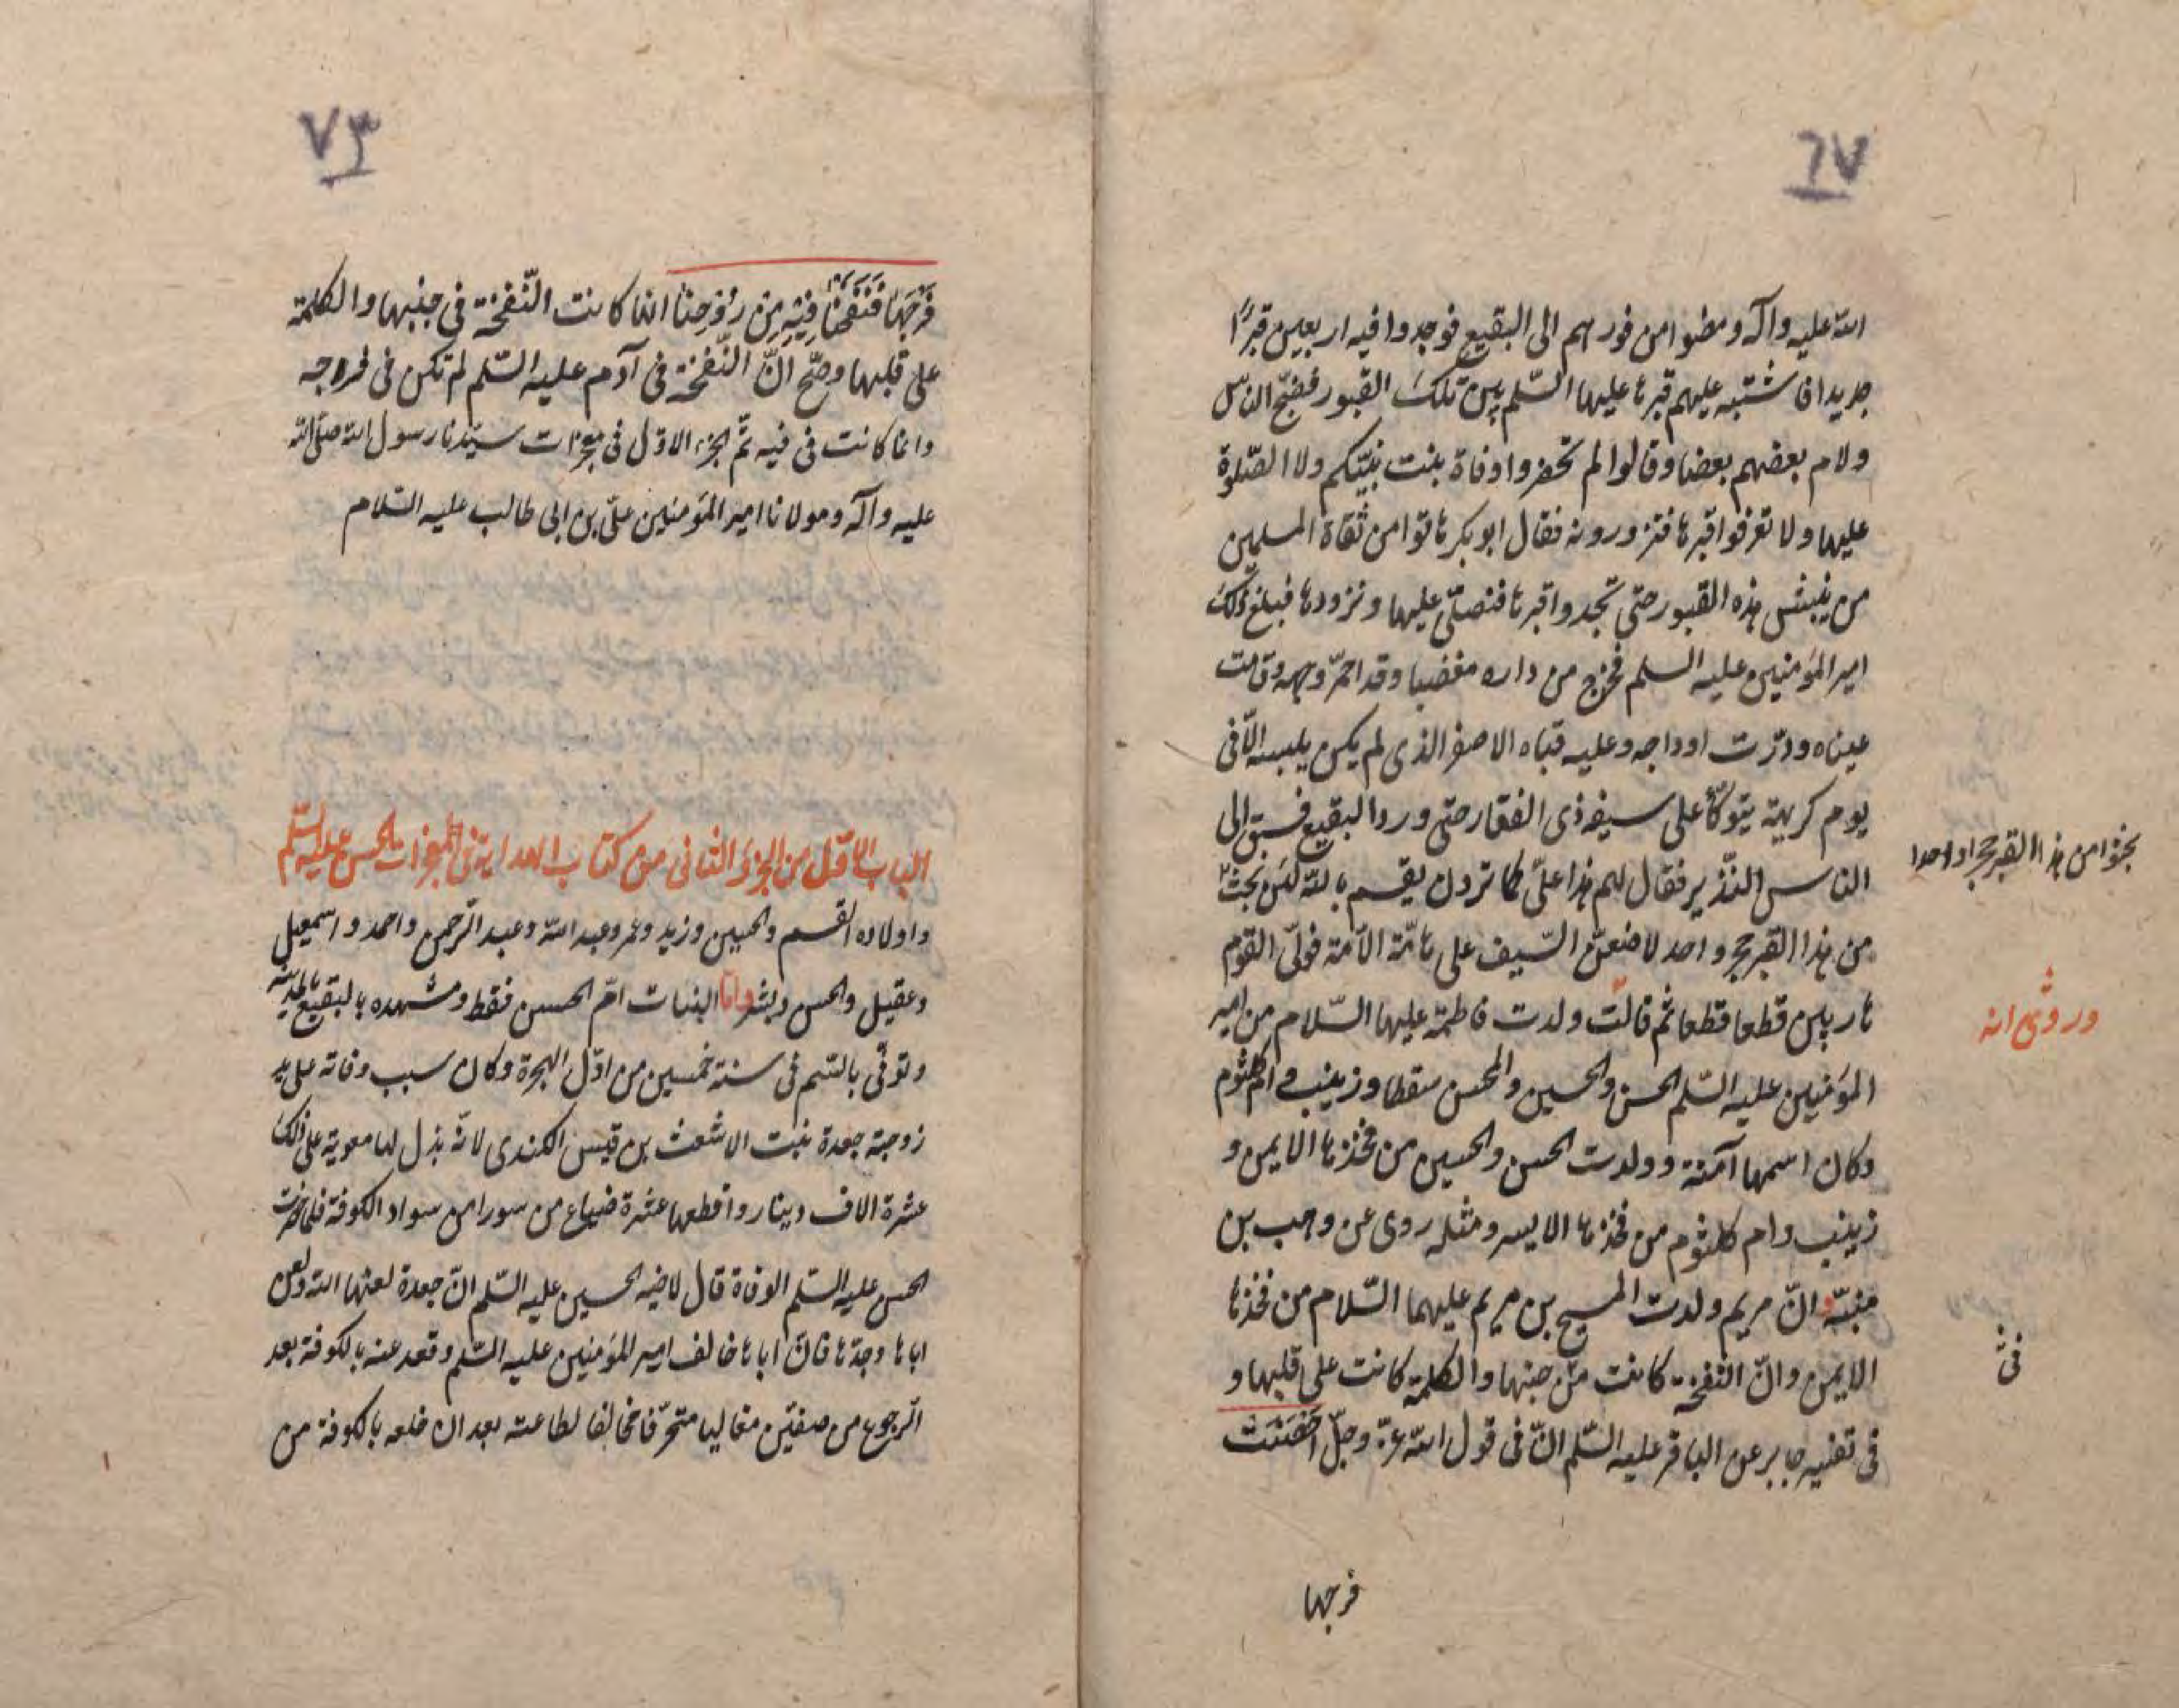 ٦٧
الله عليه وآله ومضوا من فورهم الى البقيع فوجدوا فيه اربعين قبرًا
جديدا فاشتبه عليهم قبرها عليها السّلم بين تلك القبور فضجّ النّاس
ولام بعضهم بعضا وقالوا لم تحضروا وفاة بنت نبيّكم ولا الصّلوة
عليها ولا تعرفوا قبرها فتزورونه فقال ابوبكر هاتوا من ثقاة المسلمين
من ينبش هذه القبور حتى تجدوا قبرها فنصلّى عليها ونزورها فبلغ ذلك
امير المؤمنين عليه السلم فخرج من داره مغضبا وقد احمرّ وجهه وقامت
عيناه ودرّت اوداجه وعليه قباه الاصفر الذى لم يكن يلبسه الّا فى
يوم كريهة يتوكّأ على سيفه ذى الفقار حتى ورد البقيع فسبق الى
الناس النّذير فقال لهم هذا علىّ كما ترون يقسم بالله لئن بحث
من هذا القبر حجر واحد لاضعنّ السّيف على هامّة الامّة فولّى القوم
هاربين قطعا قطعا ثم قالت ولدت فاطمة عليها السّلام من امير
المؤمنين عليه السّلم الحسن والحسين والمحسن سقطا وزينب وام كلثوم
وكان اسمها آمنة وولدت الحسن والحسين من فخذها الايمن و
زينب وام كلثوم من فخذها الايسر ومثله روى عن وهب بن
منبّه انّ مريم ولدت المسيح بن مريم عليهما السّلام من فخذها
الايمن وانّ النفخة كانت من جنبها والكلمة كانت على قلبها و
فى تفسير جابر عن الباقر عليه السّلم انّ فى قول الله عزّ وجلّ احصنت
فرجها
بحثوا من هذا القبر حجرا واحدا
وروى انه
فى
٧٣
فَرْجَهَا فَنَفَخْنَا فِيهِ مِنْ رُوحِنَا انما كانت النّفخة فى جنبها والكلمة
على قلبها وصحّ انّ النّفخة فى آدم عليه السّلم لم تكن فى فروجه
وانما كانت فى فيه تمّ الجزء الاوّل فى معجزات سيّدنا رسول الله صلى الله
عليه وآله ومولانا امير المؤمنين علىّ بن ابى طالب عليه السّلام
الباب الاوّل من الجزؤ الثانى من كتاب الهداية فى المعجزات الحسن عليه السّلم
واولاده القسم والحسين وزيد وعمر وعبد الله وعبد الرّحمن واحمد واسمعيل
وعقيل والحسن وبشر وامّا البنات امّ الحسن فقط ومشهده بالبقيع بالمدينة
وتوفّى بالسّم فى سنة خمسين من اوّل الهجرة وكان سبب وفاته على يد
زوجته جعدة بنت الاشعث بن قيس الكندى لانّه بذل لها معوية على ذلك
عشرة الاف دينار واقطعها عشرة ضياع من سورا من سواد الكوفة فلما حضرت
الحسن عليه السّلم الوفاة قال لاخيه الحسين عليه السّلم انّ جعدة لعنها الله ولعن
اباها وجدّها فانّ اباها خالف امير المؤمنين عليه السّلم وقعد عنه بالكوفة بعد
الرّجوع من صفيّن مغاليا متحرّفا مخالفا لطاعته بعد ان خلعه بالكوفة من